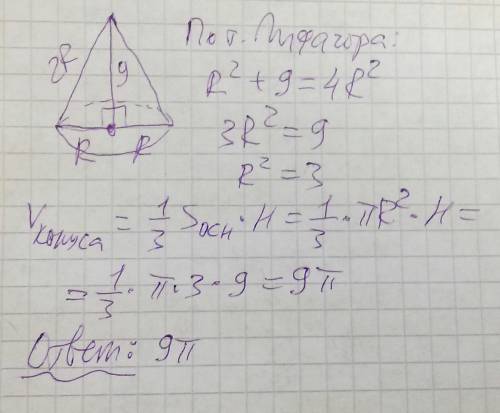 2R
9
R R
По т. Пифагора:
R² + 9 = 4R²
3R² = 9
R² = 3
Vконуса = 1/3 Sосн · H = 1/3 · πR² · H =
= 1/3 · π · 3 · 9 = 9π
Ответ: 9π